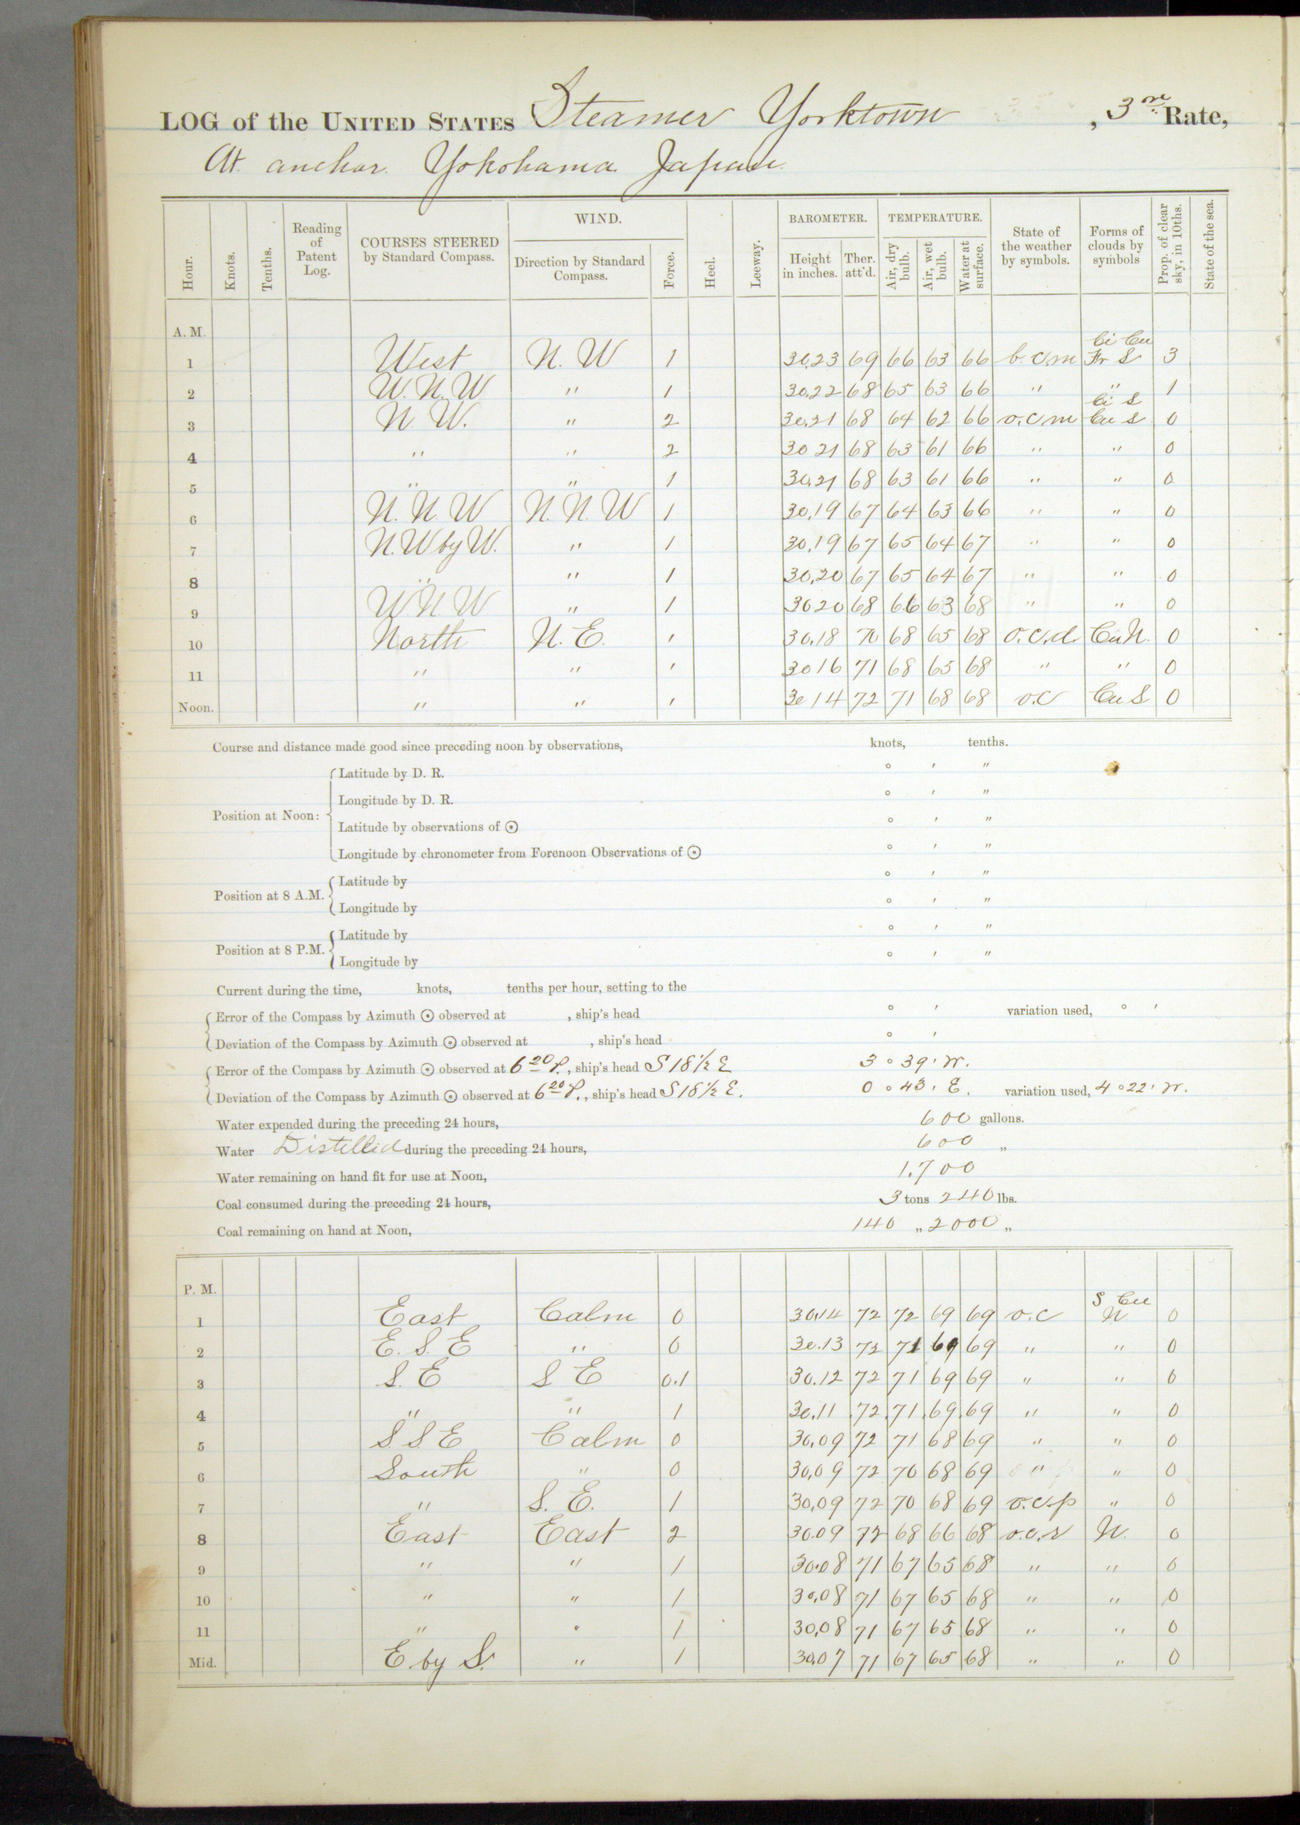 LOG of the UNITED STATES Steamer Yorktown , 3rd Rate,
At anchor. Yokohama Japan
Hour. Knots. Tenths. Reading of Patent Log. COURSES STEERED by Standard Compass. WIND. Direction by Standard Compass. Force. Heel. Leeway. BAROMETER. Height in inches. Ther. att'd. TEMPERATURE. Air, dry bulb. Air, wet bulb. Water at surface. State of the weather by symbols. Forms of clouds by symbols Prop. of clear sky, in 10ths. State of the sea.
A. M.
1 West N. W 1 30.23 69 66 63 66 b.c.m Ci Cu Fr S 3
2 W. N. W " 1 30.22 68 65 63 66 " " 1
3 N. W. " 2 30.21 68 64 62 66 o.c.m Ci S Cu S 0
4 " " 2 30 21 68 63 61 66 " " 0
5 " " 1 30.21 68 63 61 66 " " 0
6 N. N. W N. N. W 1 30.19 67 64 63 66 " " 0
7 N. W by W. " 1 30.19 67 65 64 67 " " 0
8 " " 1 30.20 67 65 64 67 " " 0
9 W N W " 1 30 20 68 66 63 68 " " 0
10 North N. E. ' 30.18 70 68 65 68 o.c.d. Cu N. 0
11 " " ' 30 16 71 68 65 68 " " 0
Noon. " " ' 30 14 72 71 68 68 o.c Cu S 0
Course and distance made good since preceding noon by observations, knots, tenths.
Position at Noon: Latitude by D. R. ° ′ ″
Longitude by D. R. ° ′ ″
Latitude by observations of ☉ ° ′ ″
Longitude by chronometer from Forenoon Observations of ☉ ° ′ ″
Position at 8 A.M. Latitude by ° ′ ″
Longitude by ° ′ ″
Position at 8 P.M. Latitude by ° ′ ″
Longitude by ° ′ ″
Current during the time, knots, tenths per hour, setting to the
Error of the Compass by Azimuth ☉ observed at , ship's head ° ′ variation used, ° ′
Deviation of the Compass by Azimuth ☉ observed at , ship's head ° ′
Error of the Compass by Azimuth ☉ observed at 6 20 P., ship's head S 18 1/2 E 3 ° 39 ′ W.
Deviation of the Compass by Azimuth ☉ observed at 6 20 P., ship's head S 18 1/2 E. 0 ° 43 ′ E. variation used, 4 ° 22 ′ W.
Water expended during the preceding 24 hours, 600 gallons.
Water Distilled during the preceding 24 hours, 600 "
Water remaining on hand fit for use at Noon, 1,700
Coal consumed during the preceding 24 hours, 3 tons 240 lbs.
Coal remaining on hand at Noon, 140 " 2000 "
P. M.
1 East Calm 0 30.14 72 72 69 69 o.c S Cu N 0
2 E. S. E " 0 30.13 72 71 69 69 " " 0
3 S. E S E 0.1 30.12 72 71 69 69 " " 0
4 " " 1 30.11 72 71 69 69 " " 0
5 S S E Calm 0 30.09 72 71 68 69 " " 0
6 South " 0 30.09 72 70 68 69 " " 0
7 " S. E. 1 30.09 72 70 68 69 o.c.p " 0
8 East East 2 30.09 72 68 66 68 o.c.r N. 0
9 " " 1 30.08 71 67 65 68 " " 0
10 " " 1 30.08 71 67 65 68 " " 0
11 " " 1 30.08 71 67 65 68 " " 0
Mid. E by S. " 1 30.07 71 67 65 68 " " 0